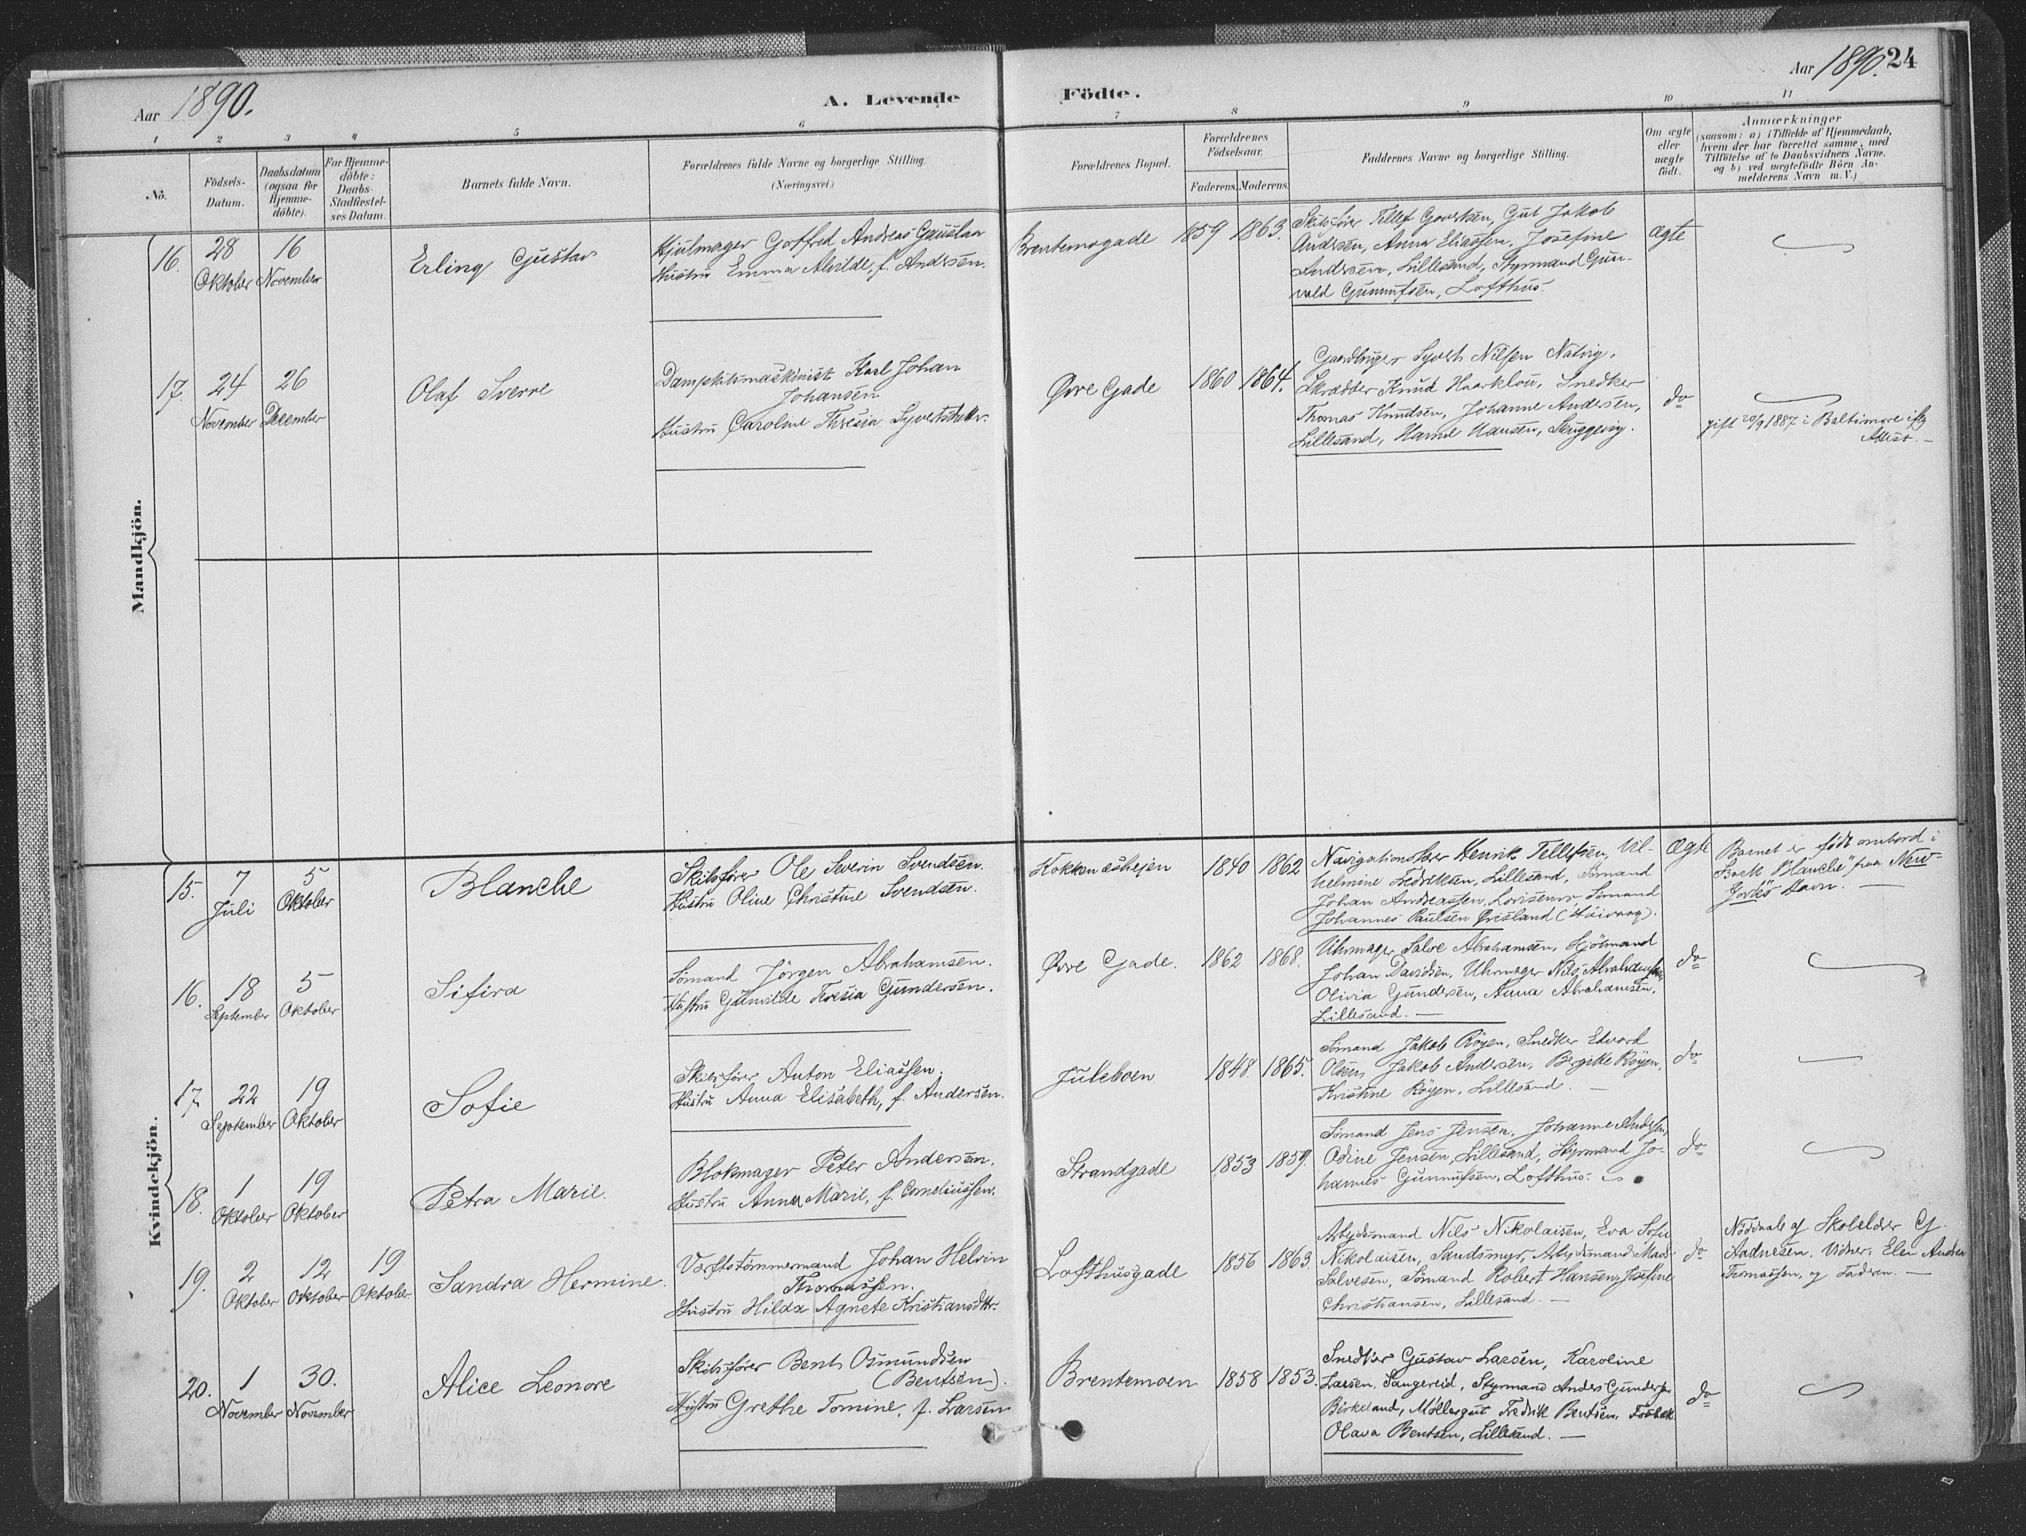 Aar 1890.
A. Levende Födte.
Aar 1890. 24
1 2 3 4 5 6 7 8 9 10 11
No.
Födsels-
Datum.
Daabsdatum
(ogsaa for
Hjemme-
döbte).
For Hjemme-
döbte:
Daabs-
Stadfæstel-
ses Datum.
Barnets fulde Navn.
Forældrenes fulde Navne og borgerlige Stilling.
(Næringsvei.)
Forældrenes Bopæl.
Forældrenes
Födselsaar.
Faderens. Moderens.
Faddernes Navne og borgerlige Stilling.
Om ægte
eller
uægte
födt.
Anmærkninger
(saasom: a) i Tilfælde af Hjemmedaab,
hvem der har forrettet samme, med
Tilföielse af to Daabsvidners Navne,
og b) ved uægtefödte Börn An-
melderens Navn m. V.)
Mandkjön.
16.
28
Oktober
16
November
Erling Gustav
Hjulmager Gotfred Andreas Gauslaa
Hustru Emma Alvilde, f. Andersen.
Brentemogade
1859 1863.
Skibsfører Tellef Govertsen, Gut Jakob
Andersen, Anna Eliassen, Josefine
Andersen, Lillesand, Styrmand Gun-
vald Gunnufsen, Lofthus.
Ægte
17.
24
November
26
December
Olaf Sverre
Dampskibsmaskinist Karl Johan
Johansen
Hustru Caroline Thresia Syvertsdatter.
Øvre Gade
1860 1864.
Gaardbruger Syvert Nilsen Natvig,
Skrædder Knud Haarklou, Snedker
Thomas Knudsen, Johanne Andersen,
Lillesand, Hansen, Skuggevig.
do
gift 20/9 1887 i Baltimore iflg
Attest.
Kvindekjön.
15.
7
Juli
5
Oktober
Blanche
Skibsfører Ole Severin Svendsen.
Hustru Oline Christine Svendsen.
Kokkenesheien
1840 1862
Navigationslærer Henrik Tellefsen, Vil-
helmine Fredriksen, Lillesand, Sømand
Johan Andreassen, Sømand
Johannes Paulsen Grisland (Høivaag).
Ægte
Barnet er født ombord i
Bark "Blanche" paa New-
Yorks Havn.
16.
18
September
5
Oktober
Sifira
Sømand Jörgen Abrahamsen.
Hustru Gunvilde Tresia Gundersen.
Øvre Gade.
1862 1868.
Uhrmager Salve Abrahamsen, Sjömand
Johan Davidsen, Uhrmager Nils Abrahamsen
Olivia Gundersen, Anna Abrahamsen,
Lillesand.
do
17.
22
September
19
Oktober
Sofie
Skibsfører Anton Eliassen,
Hustru Anna Elisabeth, f. Andersen.
Juleboen
1848. 1865.
Sømand Jakob Röyen, Snedker Edvard
Olsen, Jakob Andersen, Birgitte Röyen,
Kristine Röyen, Lillesand.
do
18.
1
Oktober
19
Oktober
Petra Marie.
Blokmager Peter Andersen.
Hustru Anna Marie, f. Corneliussen.
Strandgade
1853 1859.
Sømand Jens Jensen, Johanne Andersen,
Odine Jensen, Lillesand, Styrmand Jo-
hannes Gunnufsen, Lofthus.
do
19.
2
Oktober
12
Oktober
19
Oktober
Sandra Hermine.
Værftstømmermand Johan Helvin
Thomassen.
Hustru Hilda Agnete Kristiansdtr.
Lofthusgade
1856 1863.
Arbeidsmand Nils Nikolaisen, Eva Sofie
Nikolaisen, Sandsmyr, Arbeidsmand Mads
Salvesen, Sømand Robert Hansen, Josefine
Christiansen, Lillesand.
do
Nøddaab af Skolelærer G.
Aadnesen. Vidner: Elen Andrea
Thomassen, og Faderen.
20.
1
November
30.
November
Alice Leonore
Skibsfører Bent Osmundsen
(Bentsen).
Hustru Grethe Tomine, f. Larsen
Brentemoen
1858 1853.
Snedker Gustav Larsen, Karoline
Larsen, Sangereid, Styrmand Anders Gundersen
Birkeland, Møllergut Fredrik Bentsen, Fosbæk
Olava Bentsen, Lillesand.
do